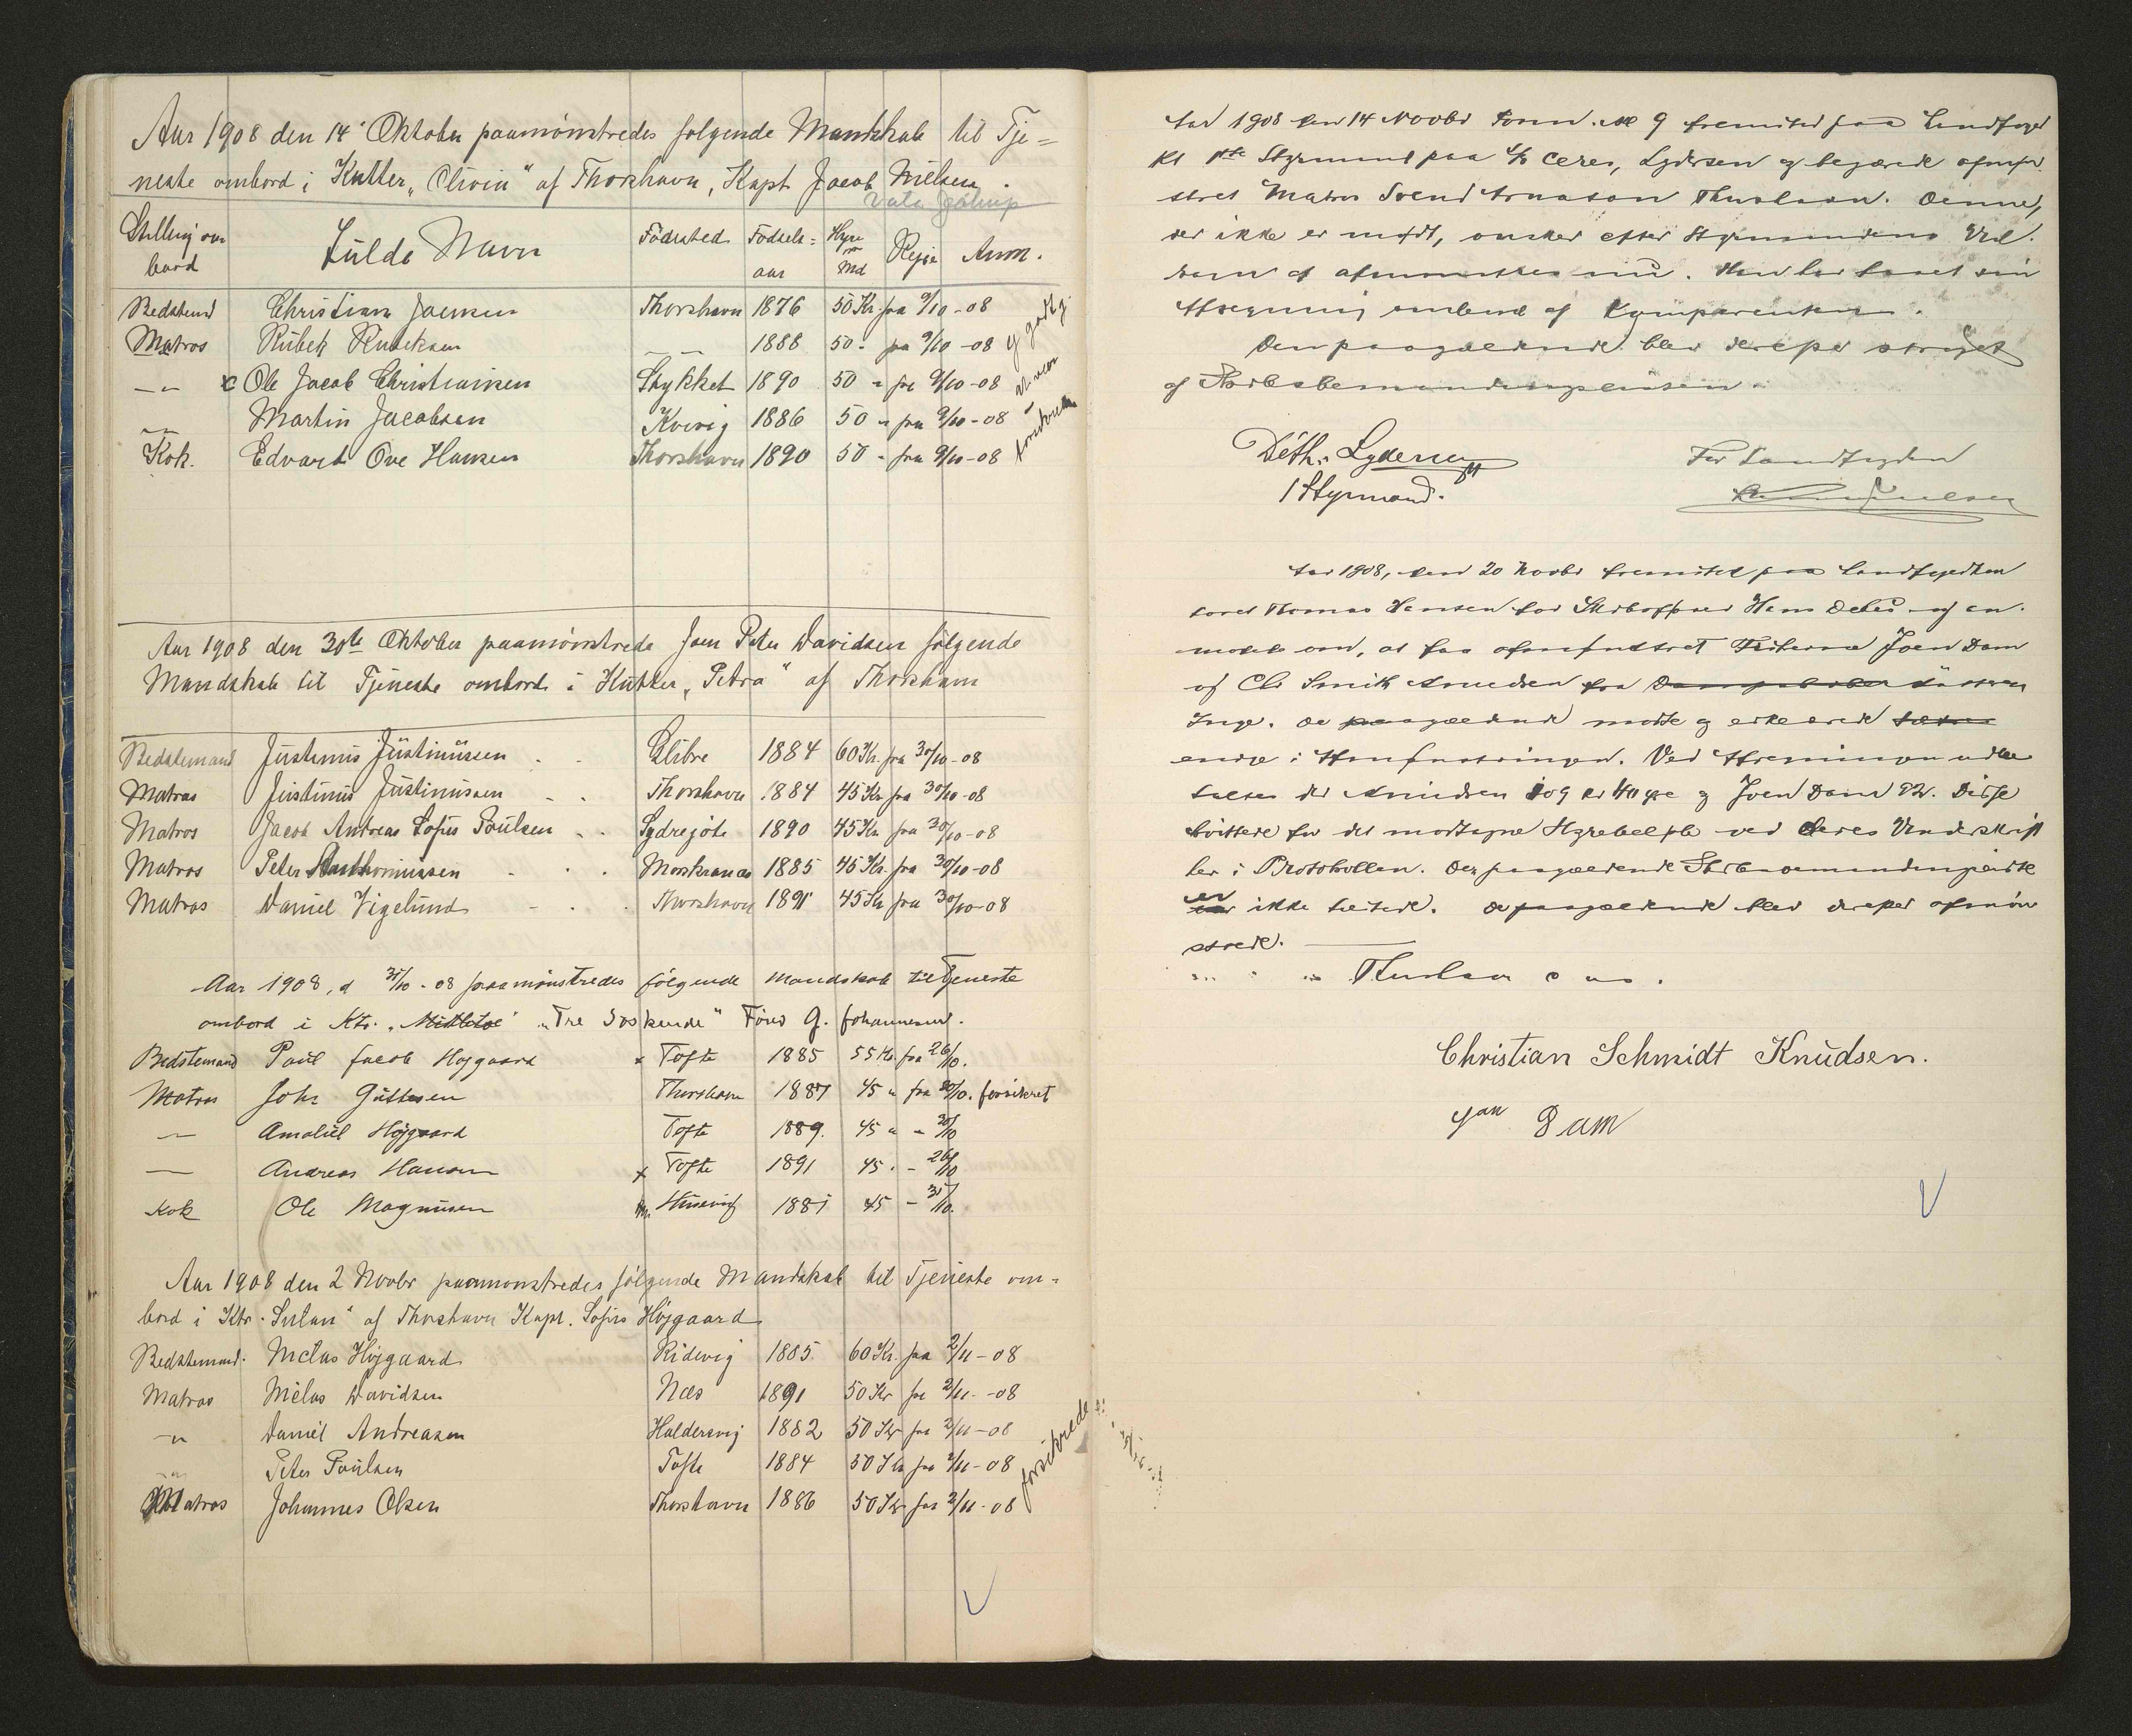 Aar 1908 den 14' Oktober paamönstredes følgende Mandskab til Tje=
neste ombord i Kutter „Clivia" af Thorshavn, Kapt Jacob Nielsen.
Stilling om
bord
Fulde Navn
Födested
Födsels=
aar
Hyre
pr
Md
Rejse
Anm.
Bedstemd Christian Joensen Thorshavn 1876 50 Kr. fra 9/10-08
Matros Rubek Rubeksen — — 1888 50 - fra 9/10-08
— " — x Ole Jacob Christiansen Stykket 1890 50 - fra 9/10-08
— " — Martin Jacobsen Kvivig 1886 50 - fra 9/10-08
Kok. Edvard Ove Hansen Thorshavn 1890 50 - fra 9/10-08
Aar 1908 den 30te Oktober paamönstrede Joen Peter Davidsen følgende
Mandskab til Tjeneste ombord i Kutter „Petra" af Thorshavn
Bedstemand Justinus Justinussen Glibre 1884 60 Kr. fra 30/10-08
Matros Justinus Justinussen Thorshavn 1884 45 Kr fra 30/10-08
Matros Jacob Andreas Sofus Poulsen Sydregöte 1890 45 Kr fra 30/10-08
Matros Peter Morskranes 1885 45 Kr. fra 30/10-08
Matros Daniel Vigelund Thorshavn 1891 45 Kr fra 30/10-08
Aar 1908, d 31/10-08 paamönstredes følgende Mandskab til Tjeneste
ombord i Ktr. „Mistletoe" „Tre Söskende" Förer J. Johannesen.
Bedstemand Poul Jacob Højgaard x Tofte 1885 55 Kr fra 26/10.
Matros Johs Guttesen Thorshavn 1887 45 " fra 30/10. forsikret
— Amaliel Højgaard Tofte 1889. 45 " " 30/10
— Andreas Hansen x Tofte 1891 45 . - 26/10
Kok Ole Magnusen Husevig 1881 45 - 31/10.
Aar 1908 den 2 Novbr paamonstredes følgende Mandskab til Tjeneste om=
bord i Ktr. „Sulan" af Thorshavn Kapt. Sofus Højgaard
Bedstemand. Niclas Højgaard Ridevig 1885 60 Kr. fra 2/11-08
Matros Niclas Davidsen Næs 1891 50 Kr fra 2/11-08
— " Daniel Andreasen Haldersvig 1882 50 Kr fra 2/11-08
— " Peter Poulsen Tofte 1884 50 Kr fra 2/11-08
Matros Johannes Olsen Thorshavn 1886 50 Kr fra 2/11-08
forsikrede
Aar 1908 den 14 Novbr Form. Kl 9 fremstod paa Landfoged
Kt 1ste Styrmand paa S/S Ceres, Lydersen og begærede afmøn
stret Matros Svend Arnason Thorshavn. Denne,
der ikke er mødt, ønsker efter Styrmandens Ud.
sagn at afmønstres nu. Han har faaet sin
Afregning ombord af Komparenten.
Den paagældende blev derefter strøget
af Skibsbemandingslisten.
Deth. Lydersen
1 Styrmand.
For Landfogden
Aar 1908, den 20 Novbr fremstod paa Landfogedkon
toret Thomas Hansen for Skibsfører Hans Debes og an.
modede om, at faa afmønstret Fiskerne Joen Dam
og Chr Smith Knudsen fra
Inge. De paagældende mødte og erklærede
enige i Afmønstringen. Ved Afregningen udbe
taltes der Knudsen 109 Kr 40 øre og Joen Dam 92. Disse
kvitterede for det modtagne Hyrebeløb ved deres Underskrift
her i Protokollen. Den paagældende Skibsbemandingsliste
er ikke tilstede. De paagældende blev derefter afmøn
strede.
Christian Schmidt Knudsen.
Joan Dam